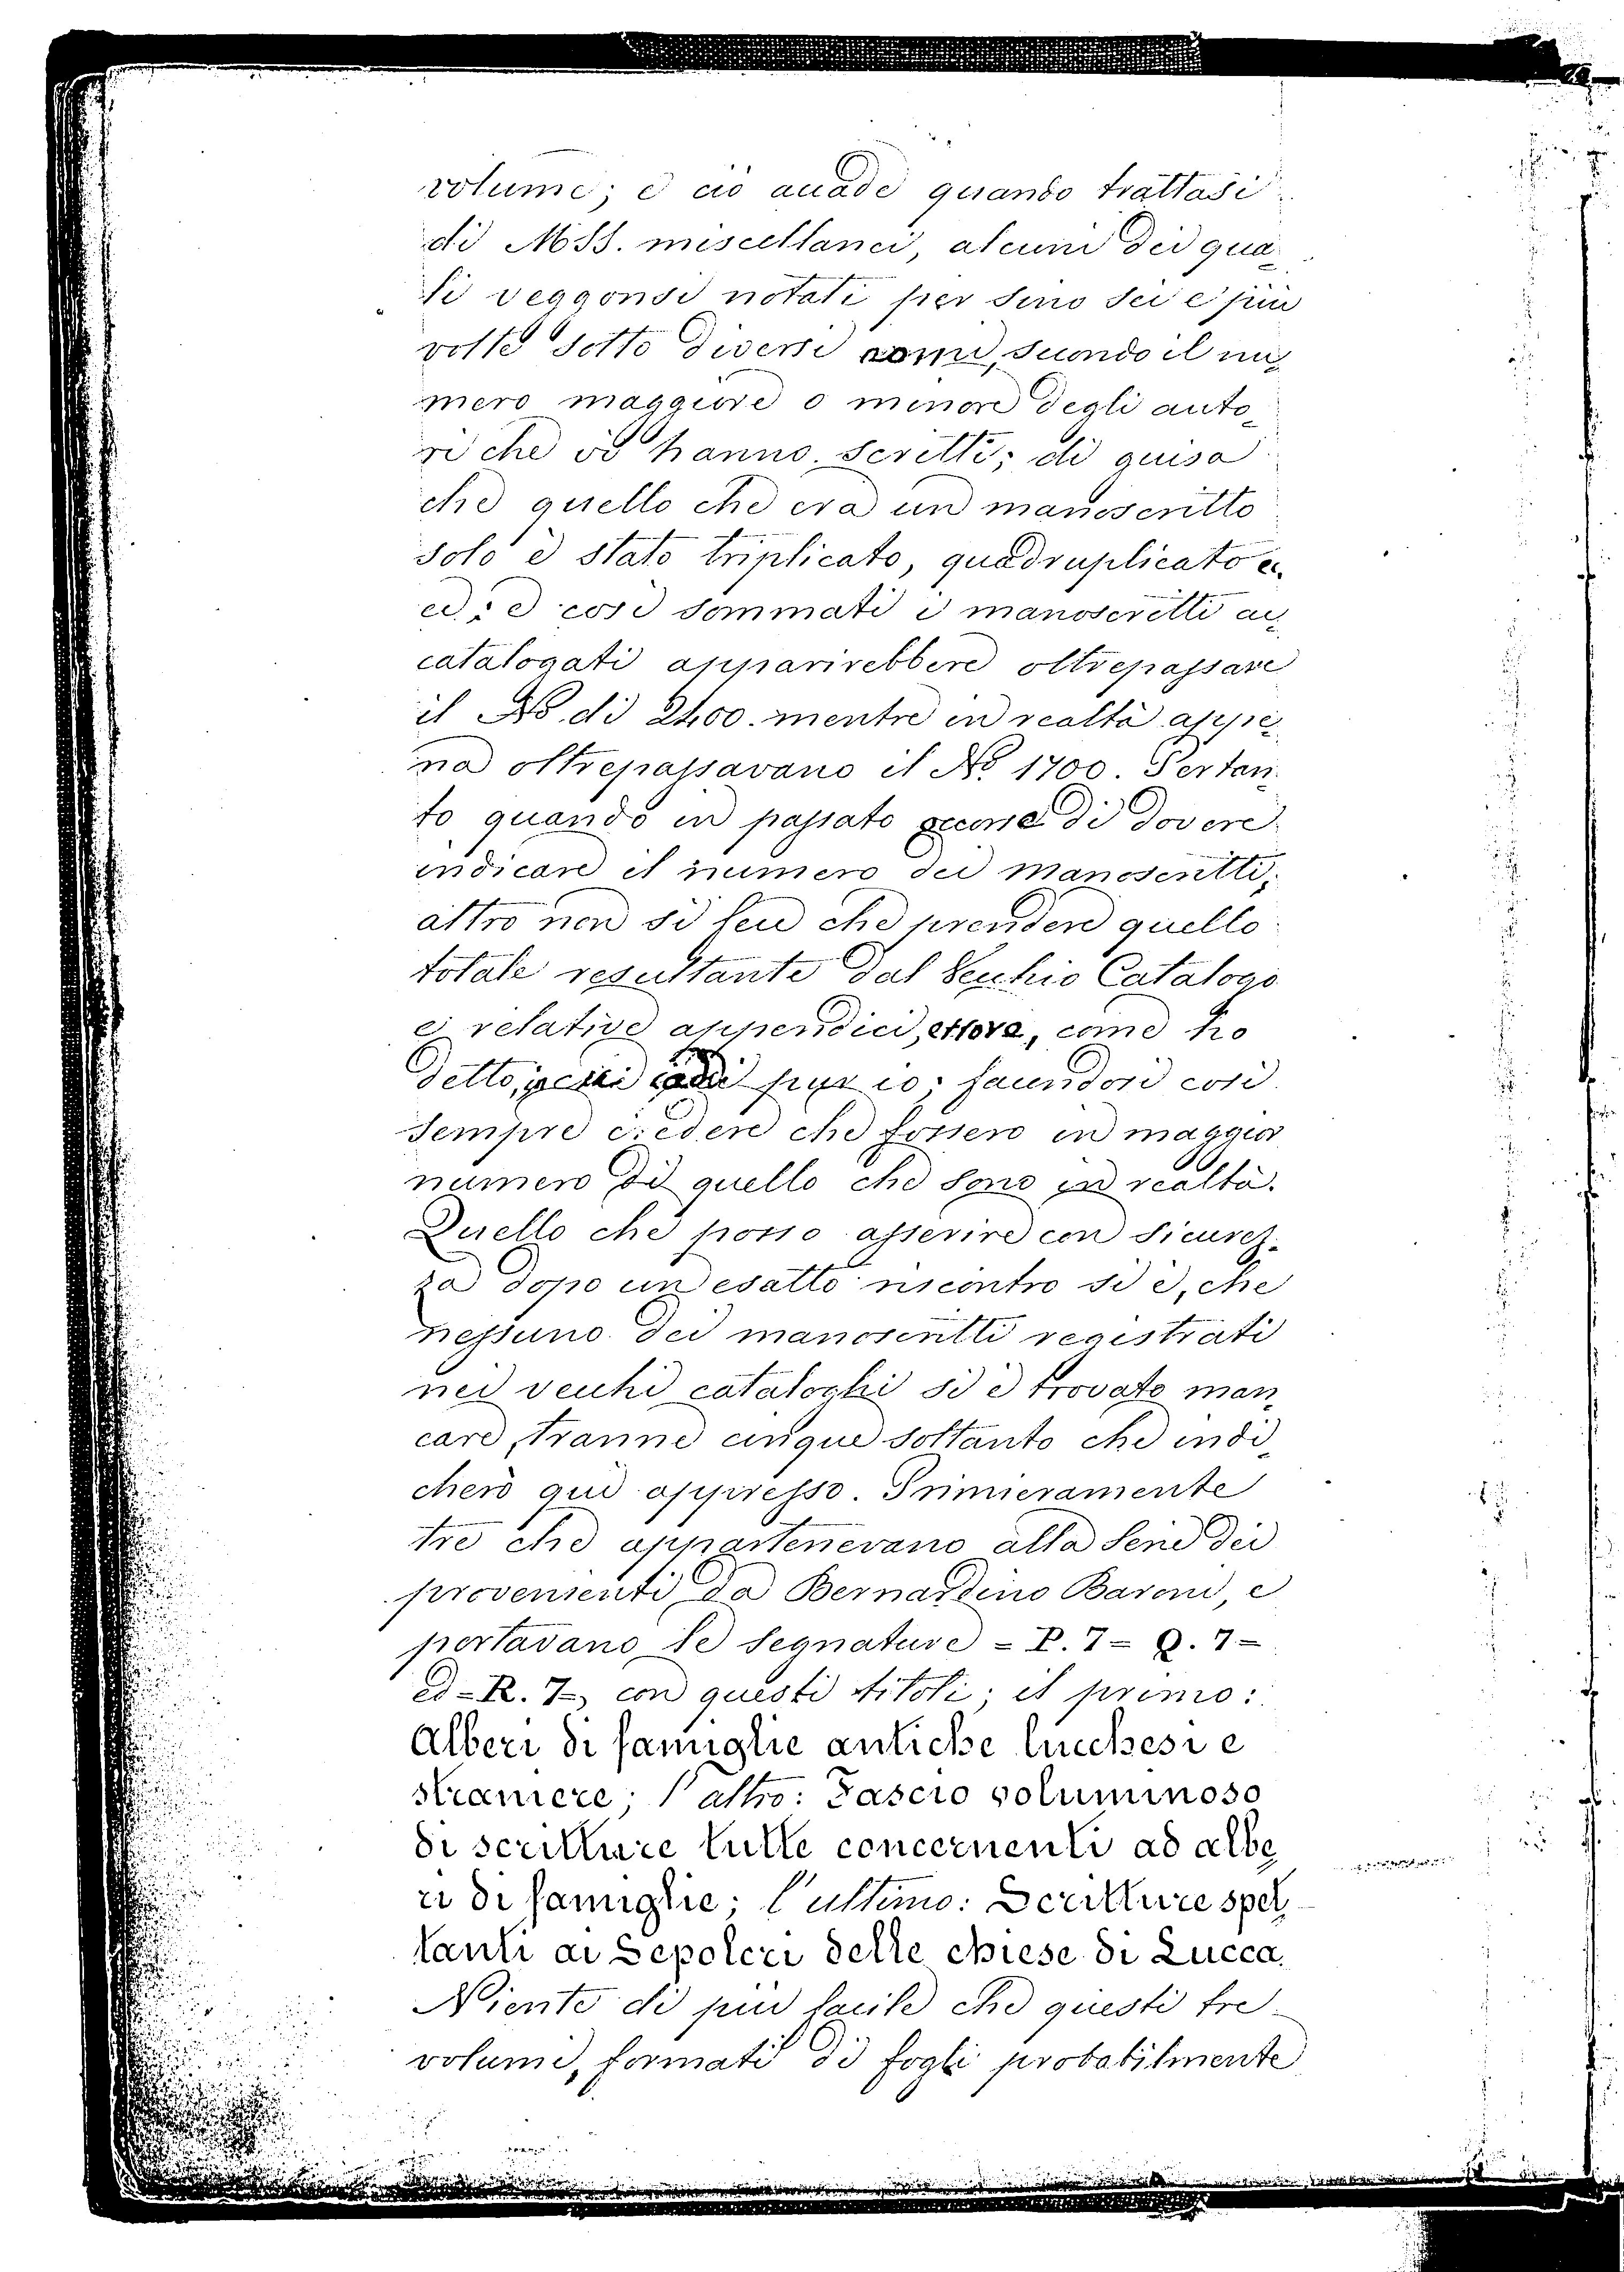 volume; e ciò accade quando trattasi
di MSS. miscellanei, alcuni dei qua-
li veggonsi notati per sino sei e più
volte sotto diversi nomi, secondo il nu-
mero maggiore o minore degli auto-
ri che vi hanno scritti; di guisa
che quello che era un manoscritto
solo è stato triplicato, quadruplicato ec.
ec.; e così sommati i manoscritti ac-
catalogati apparirebbere oltrepassare
il No. di 2400. mentre in realtà appe-
na oltrepassavano il No. 1700. Pertan-
to quando in passato di dovere
indicare il numero dei manoscritti,
altro non si feu che prendere quello
totale resultante dal Vecchio Catalogo
e relative appendici, come ho
detto, facendosi così
sempre credere che fossero in maggior
numero di quello che sono in realtà.
Quello che posso asserire con sicurez-
za dopo un esatto riscontro si è, che
nessuno dei manoscritti registrati
nei vecchi cataloghi si è trovato man-
care, tranne cinque soltanto che indi-
cherò qui appresso. Primieramente
tre che appartenevano alla serie dei
provenienti da Bernardino Baroni, e
portavano le segnature = P. 7 = Q. 7 =
ed = R. 7 =, con questi titoli; il primo:
Alberi di famiglie antiche lucchesi e
straniere; l'altro: Fascio voluminoso
di scritture tutte concernenti ad albe-
ri di famiglie; l'ultimo: Scritture spet-
tanti ai Sepolcri delle chiese di Lucca.
Niente di più facile che questi tre
volumi, formati di fogli probabilmente